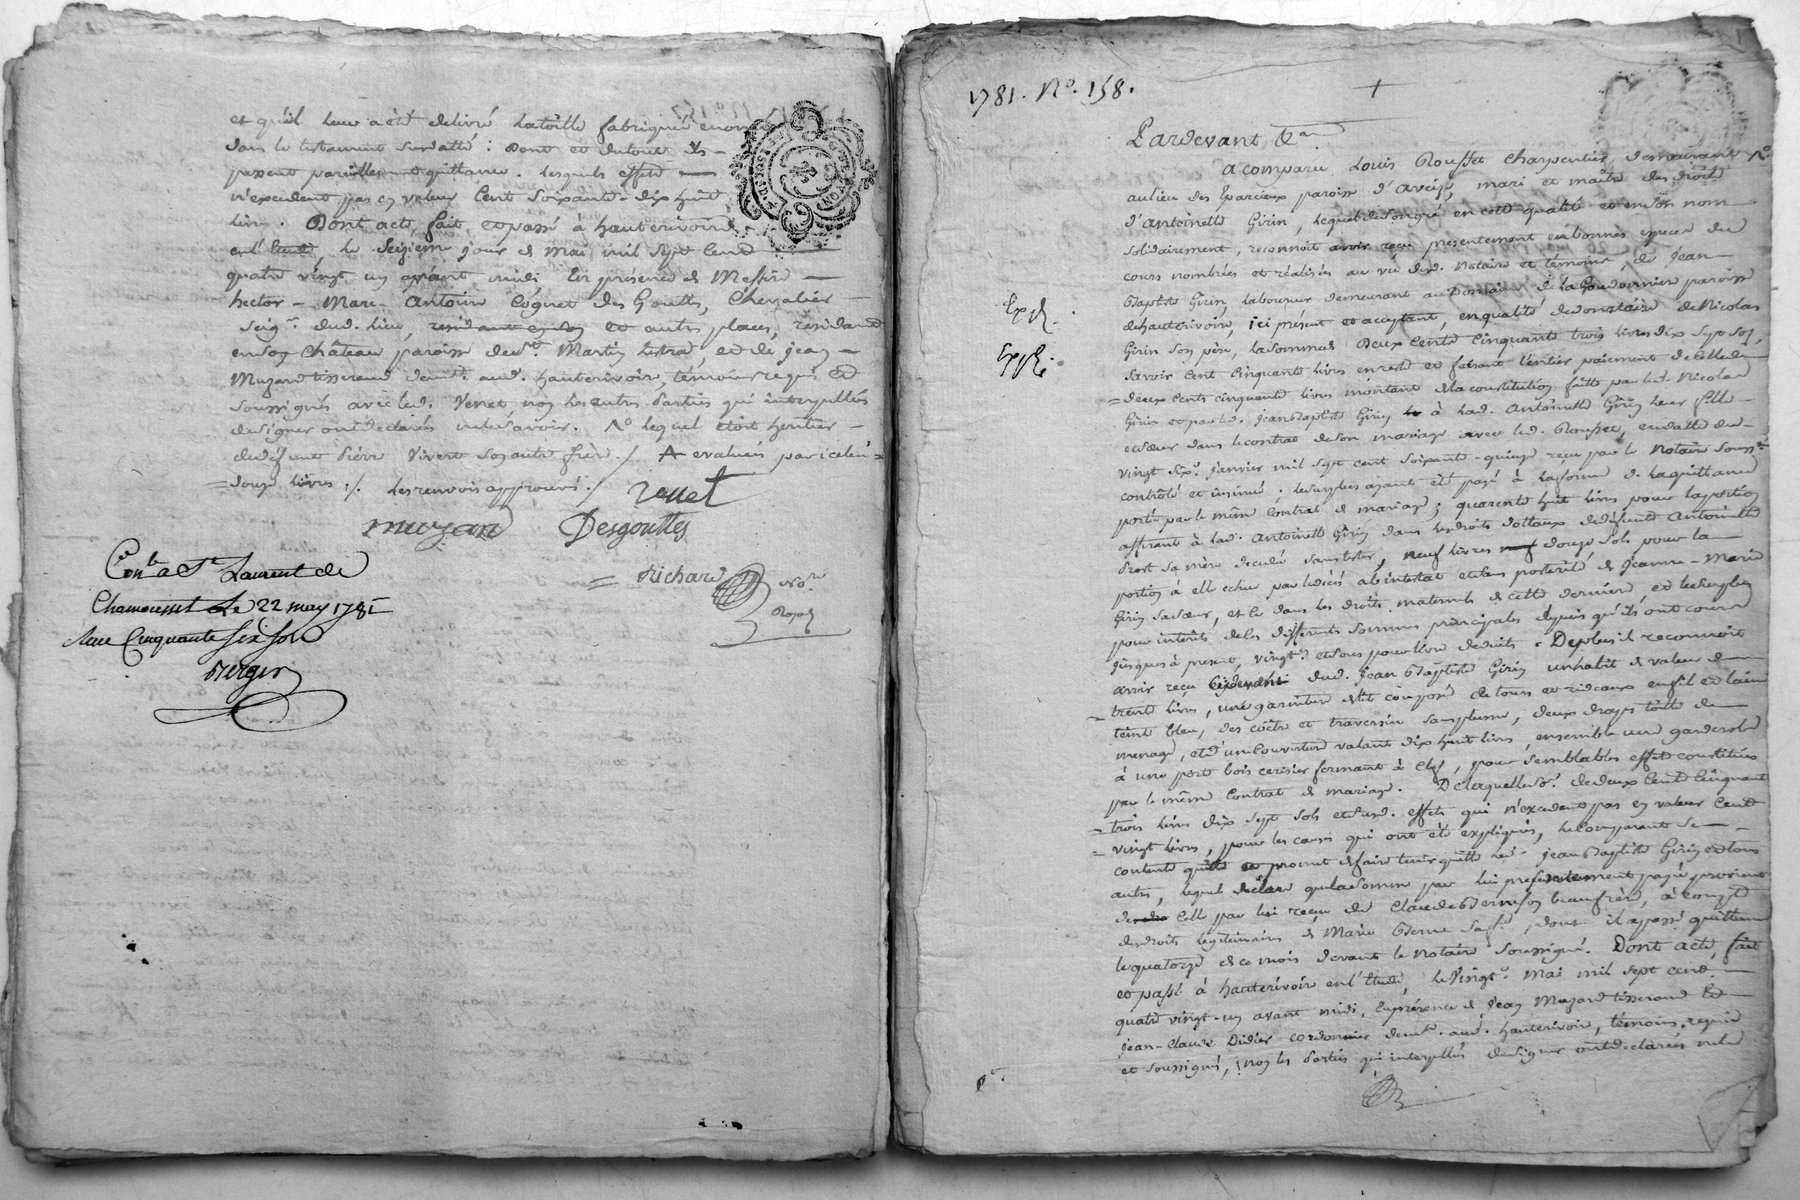 et qu'il leur a été delivré la toille fabriquée enoncée
dans le testament surdatté : Dont et du tout ils
passent pareillement quittance. Lesquels effets
n'excedent pas en valeur Cent soixante-dix huit
livres. Dont acte, fait et passé à hauterivoire
en l'Etude, le seizieme jour de Mai mil sept cent
quatre vingt un avant midi En présence de Messire
hector-Marc Antoine Cognet des Gouttes, Chevalier
seigr. dud. lieu, et autres places, résidant
en son Château paroisse de St. Martin lestra, et de jean
Muzard tisserand demt. aud. hauterivoire, témoins requis et
soussignés avec led. Venet non les autres Parties qui interpellées
de signer ont declarés ne le savoir. No lequel étoit heritier
du défunt Piérre Vivert son autre frère ./. A evalués par icelui
douze livres ./. les renvois approuvés ./.
Venet
muzard Desgouttes
Richard Nore.
Royal
Conlé a St Laurent de
Chamousset Le 22 may 1781
Recu Cinquante six sols
Berger
1781. No. 158.
+
Pardevant, &a
A comparu Louis Rousset charpentier demeurant
au lieu des paroisse d'Aveise, mari et maître des droits
d'Antoinette Girin, lequel de son gré en cette qualité et en son nom
solidairement, reconnoit avoir reçu présentement en bonnes especes du
cours nombrées et réalisées au vû dud. Notaire et témoins, de Jean-
Baptiste Girin, laboureur demeurant au Domaine de la paroisse
de hauterivoire, ici présent et acceptant, en qualité de donataire de Nicolas
Expé.
Girin son père, la somme de Deux Cents Cinquante trois livres dix sept sols,
savoir Cent Cinquante livres en reste et faisant l'entier paiement de celle de
Expé.
deux Cents cinquante livres montant de la constitution faite par led. Nicolas
Girin et par led. Jean Baptiste Girin à lad. Antoinette Girin leur fille
et sœur dans le contrat de son mariage avec led. Rousset, en datte du
vingt six. janvier mil sept cent soixante-quinze reçu par le Notaire soussigné
controlé et insinué ; le surplus ayant été payé à la forme de la quittance
portée par le même Contrat de mariage ; quarente huit livres pour la portion
afférant à lad. Antoinette Girin dans les droits dottaux de défunte Antoinette
sa mère decedée sans tester, neuf livres douze sols pour la
portion à elle echue par le décès ab intestat et sans postérité de Jeanne-Marie
Girin sa sœur, et ce dans les droits maternels de cette derniere, et le surplus
pour intérêts de les différentes sommes principales depuis qu'ils ont couru
jusques à présent, vingte. et sous pour livre deduits. De plus il reconnoit
avoir reçu ci devant dud. Jean Baptiste Girin un habit de valeur de
trente livres, une garniture de lit composée de tours et rideaux en fil et laine
teint bleu, des coëtre et traversin sans plume, deux draps toille de
menage, et d'une couverture valant dix huit livres, ensemble une garderobe
à une porte bois cerisier fermant à clef, pour semblables effets constitués
par le même Contrat de mariage. De laquelle so. de deux Cents Cinquante
trois livres dix sept sols et susd. effets qui n'excedent pas en valeur Cent
vingt livres, pour les causes qui ont été expliquées, le Comparant se
contente quitte et promet de faire tenir quitte led. Jean Baptiste Girin et tous
autres, lequel déclare que la somme par lui présentement payée provient
de celle par lui reçue de Claude son beaufrère, à compte
des droits legitimaires de Marie sa fe., dont il a passé quittance
le quatorze de ce mois devant le Notaire soussigné. Dont acte, fait
et passé à hauterivoire en l'Etude, le vingte. Mai mil sept cent
quatre vingt-un avant midi, En présence de Jean Muzard tisserand et
Jean-Claude Didier cordonnier demt. aud. hauterivoire, témoins requis
et soussignés, non les Parties qui interpellées de signer ont declarées ne le